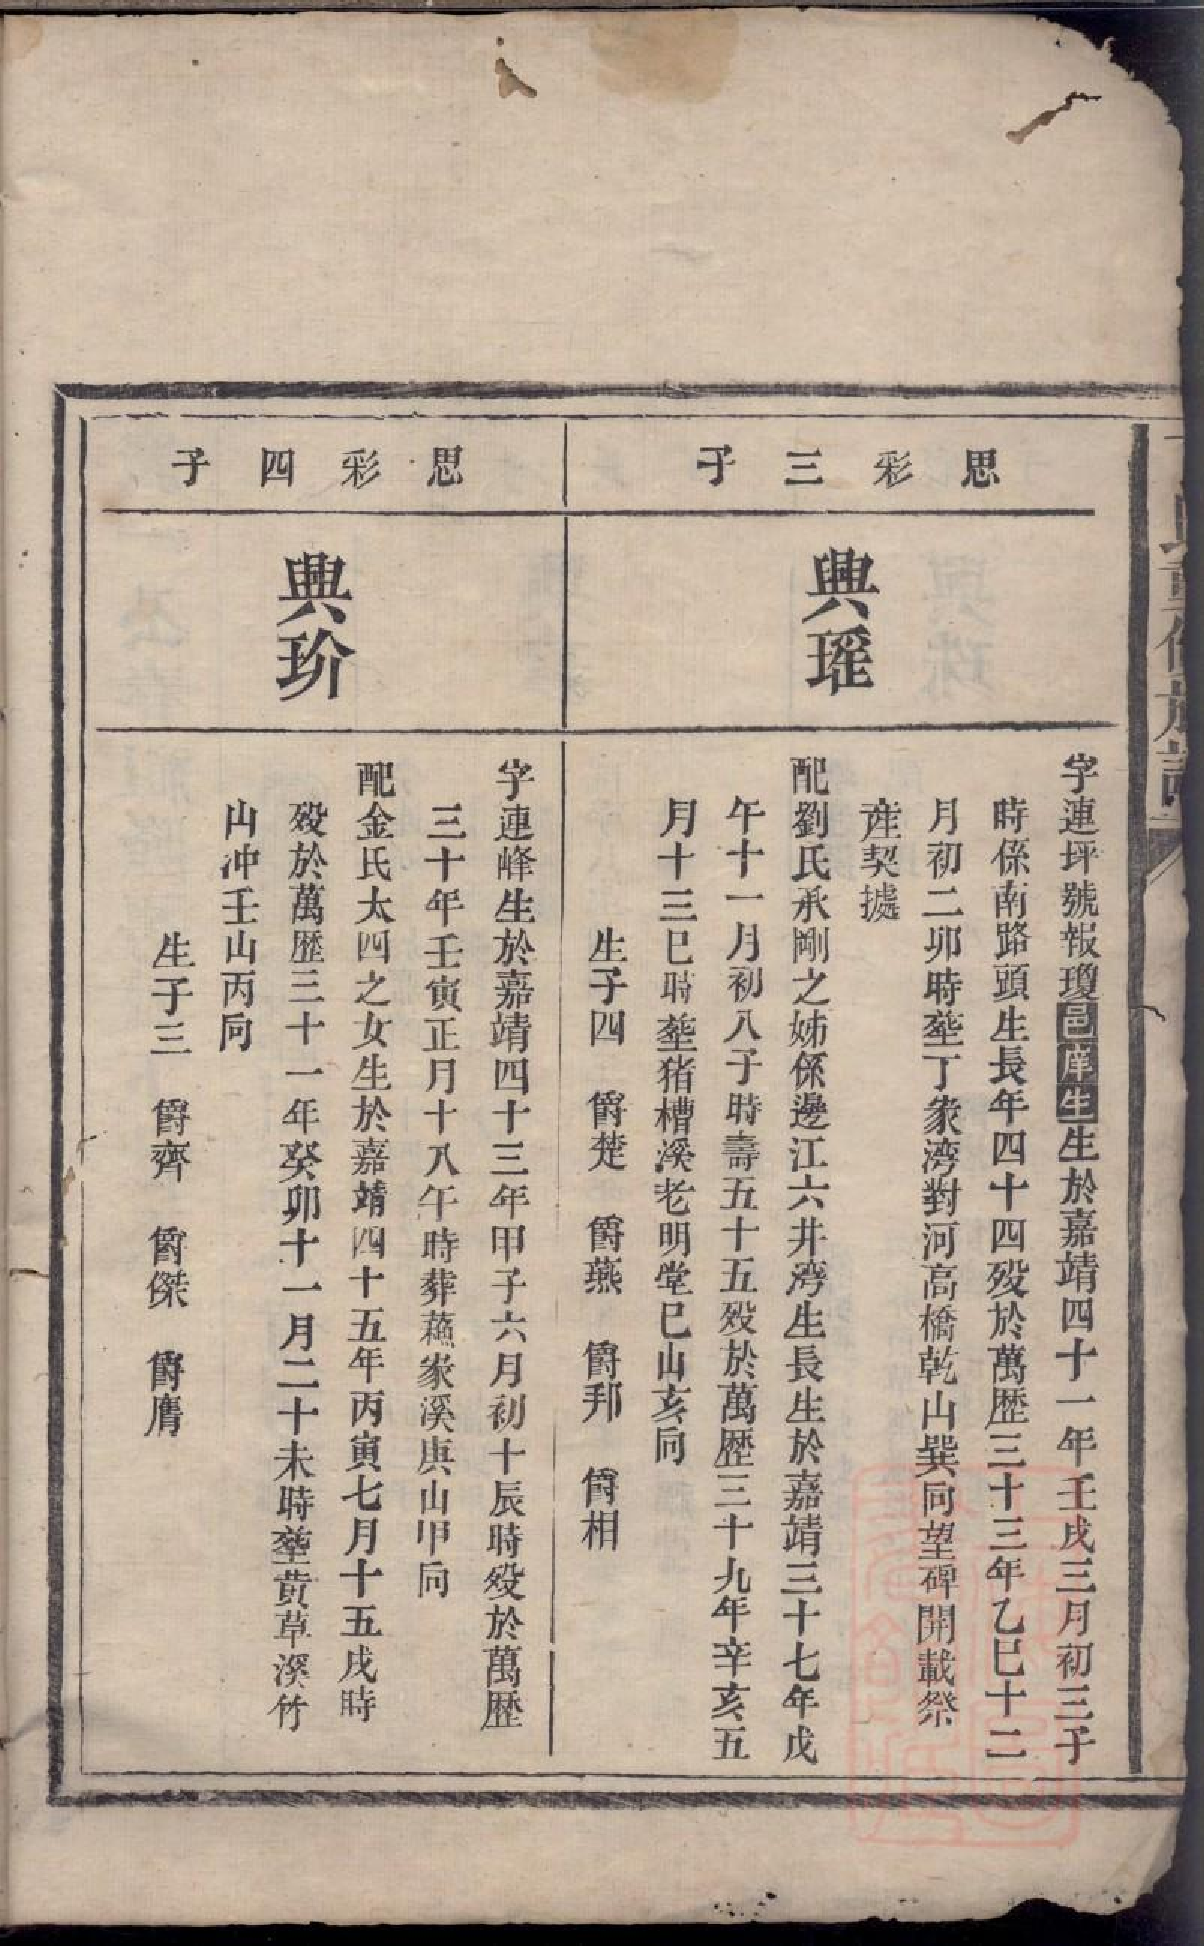 思彩三子
典瑾
字連坪號報瓊邑庠生生於嘉靖四十一年壬戌三月初三子
時係南路頭生長年四十四殁於萬歷三十三年乙巳十二
月初二卯時塟丁家湾對河高橋乾山巽向望碑開載祭
産契據
配劉氏承剛之姊係邊江六井湾生長生於嘉靖三十七年戊
午十一月初八子時壽五十五殁於萬歷三十九年辛亥五
月十三巳時塟猪槽溪老明堂巳山亥向
生子四 爵楚 爵燕 爵邦 爵相
思彩四子
典玠
字連峰生於嘉靖四十三年甲子六月初十辰時殁於萬歷
三十年壬寅正月十八午時葬蘓家溪庚山甲向
配金氏太四之女生於嘉靖四十五年丙寅七月十五戌時
殁於萬歷三十一年癸卯十一月二十未時塟黄草溪竹
山冲壬山丙向
生子三 爵齊 爵傑 爵膺